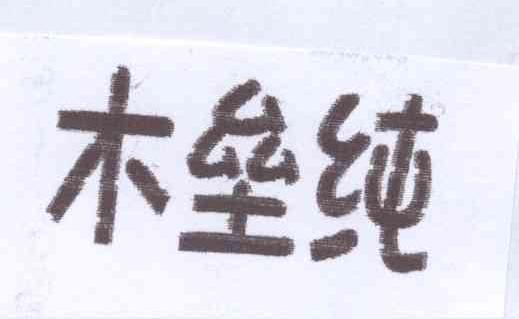 木垒纯